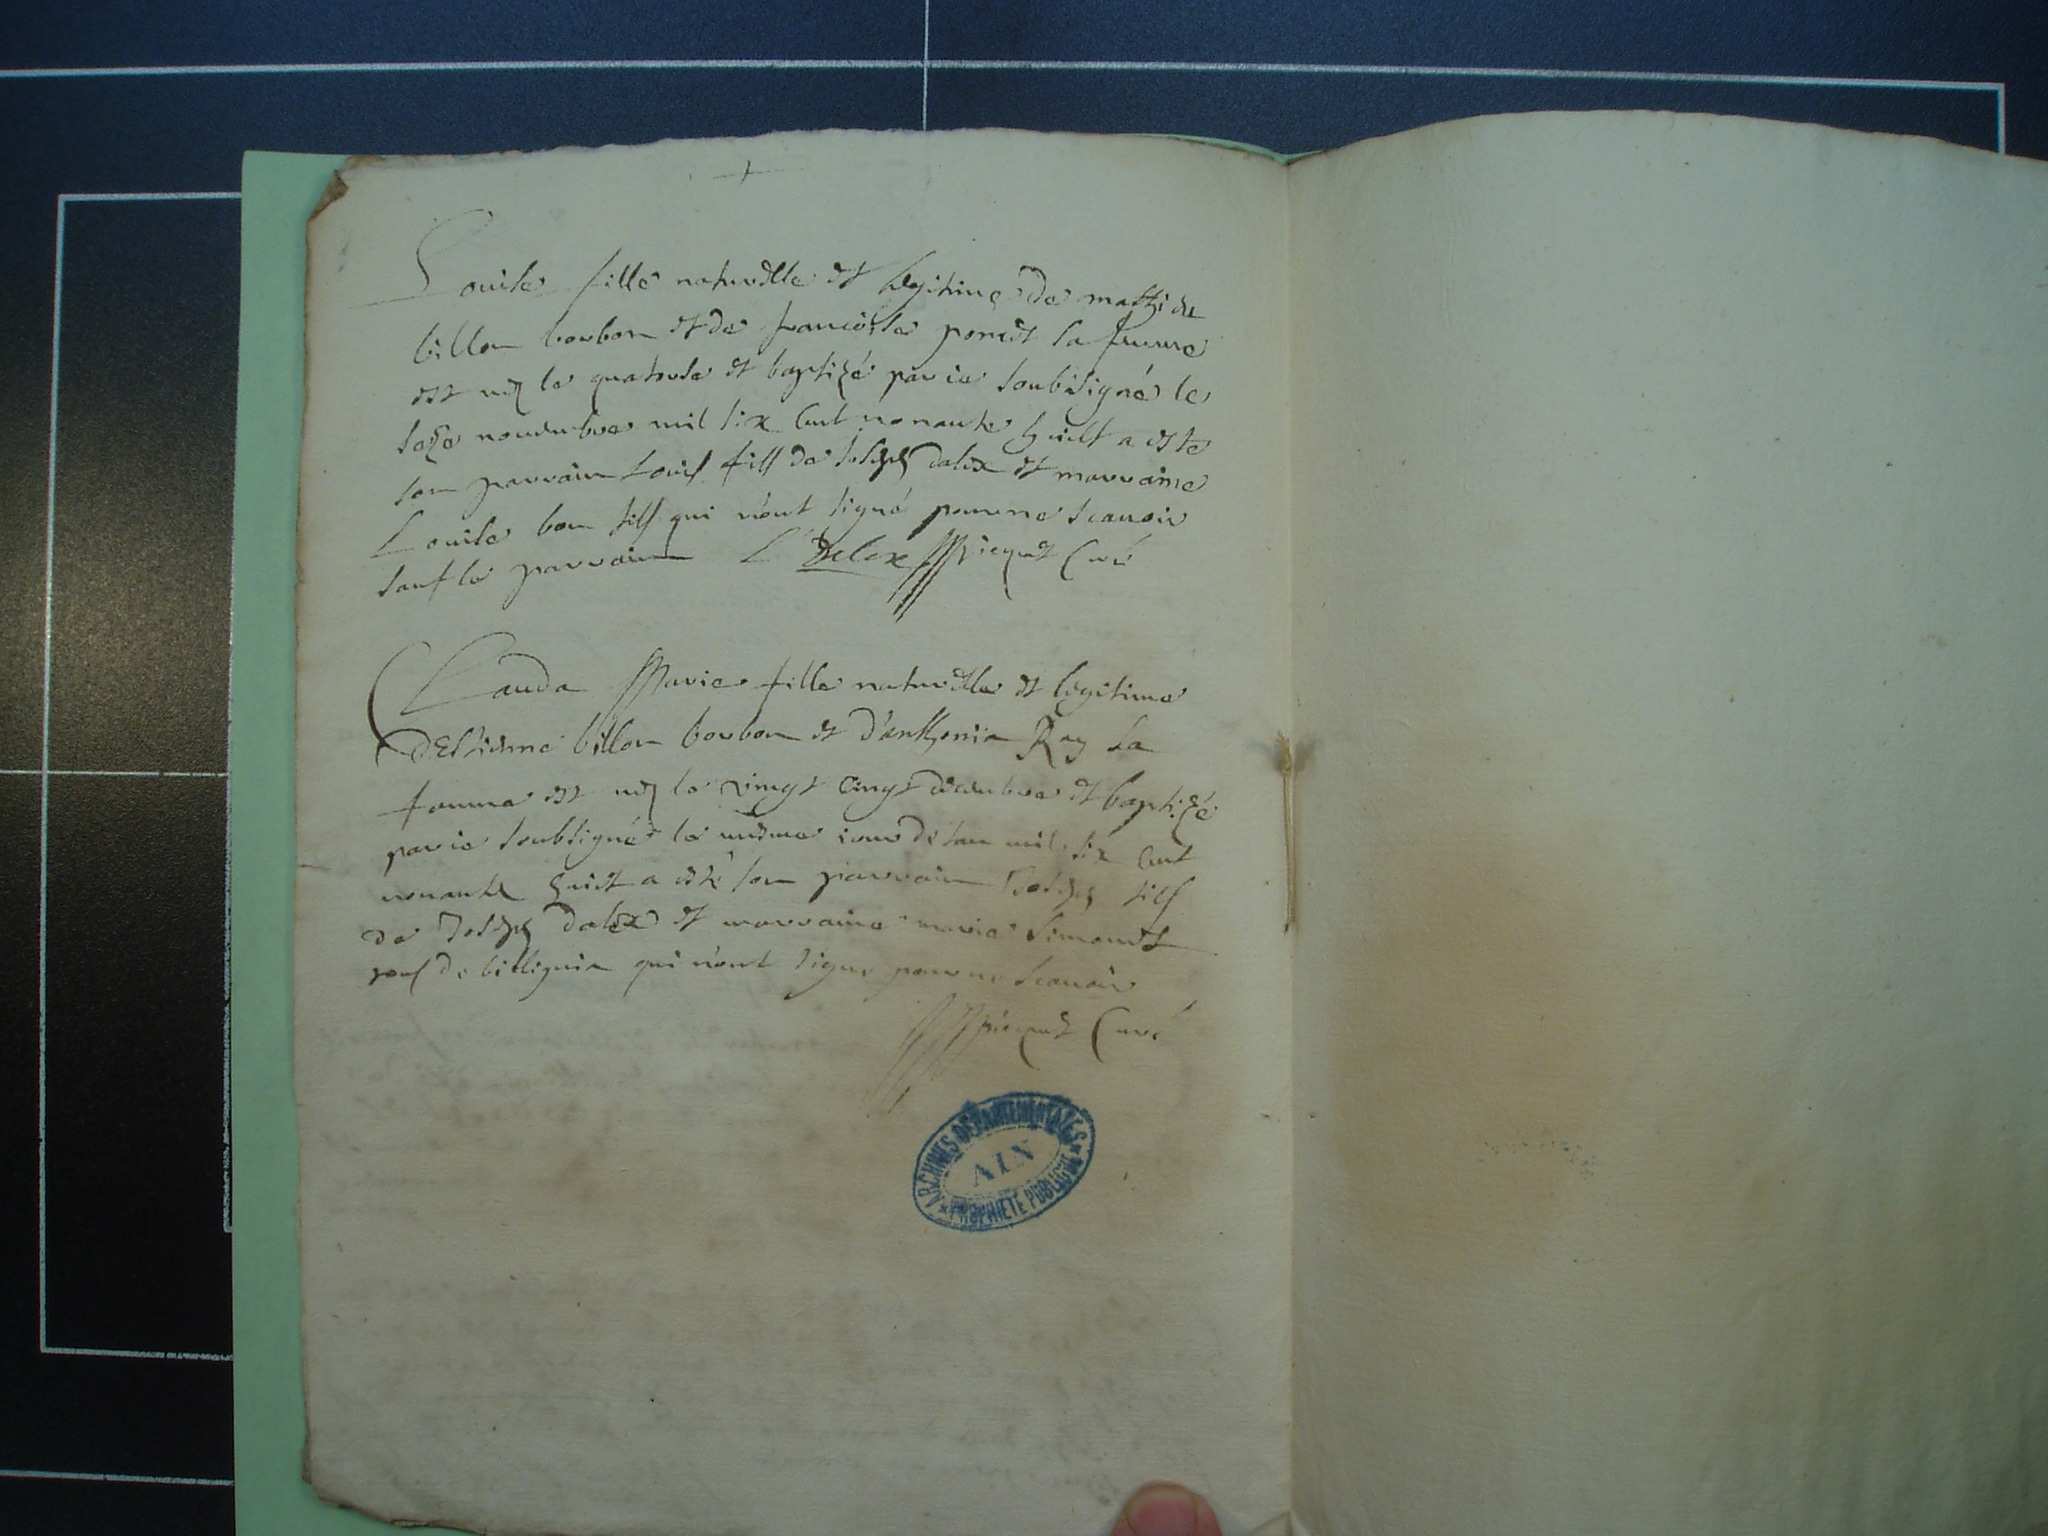 Louise fille naturelle et legitime de matthieu
billon bourbon et de francoise ponset sa femme
est nez le quatorse et baptizé par ie soubsigné le
seze nouembre mil six cent nonante huict a esté
son parrain Louis fils de Joseph dalex et marraine
Louise bon fils qui n'ont signé pour ne scauoir
sauf le parrain L Delex curé
Clauda Marie fille naturelle et legitime
D'Estienne billon bourbon et d'anthonia Ray sa
femme est nez le vingt cinqt decembre et baptizé
par ie soubsigné le mesme iour de l'an mil six cent
nonante huict a esté son parrain Joseph fils
de Joseph dalex et marraine marie Simonet
tous de billignia qui n'ont signe pour ne scauoir
Curé
ARCHIVES DÉPARTEMENTALES
AIN
PROPRIÉTÉ PUBLIQUE